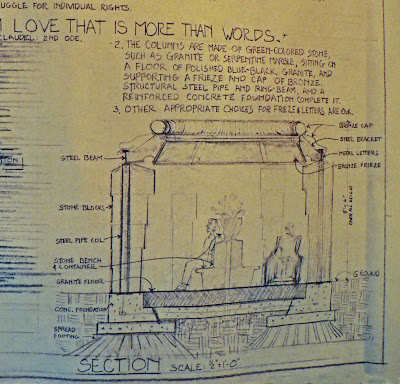 UGGLE FOR INDIVIDUAL RIGHTS.
LOVE THAT IS MORE THAN WORDS.
CLAUDEL: 2ND ODE.
2. THE COLUMNS ARE MADE OF GREEN-COLORED STONE,
SUCH AS GRANITE OR SERPENTINE MARBLE, SITTING ON
A FLOOR OF POLISHED BLUE-BLACK GRANITE, AND
SUPPORTING A FRIEZE AND CAP OF BRONZE.
STRUCTURAL STEEL PIPE AND RING-BEAM, AND A
REINFORCED CONCRETE FOUNDATION COMPLETE IT.
3. OTHER APPROPRIATE CHOICES FOR FRIEZE & LETTERS ARE O.K.
BRONZE CAP
STEEL BRACKET
METAL LETTERS
BRONZE FRIEZE
STEEL BEAM
STONE BLOCKS
STEEL PIPE COL.
STONE BENCH
& CONTAINER
GRANITE FLOOR
CONC. FOUNDATION
SPREAD
FOOTING
GROUND
SECTION SCALE: ½"=1'-0"